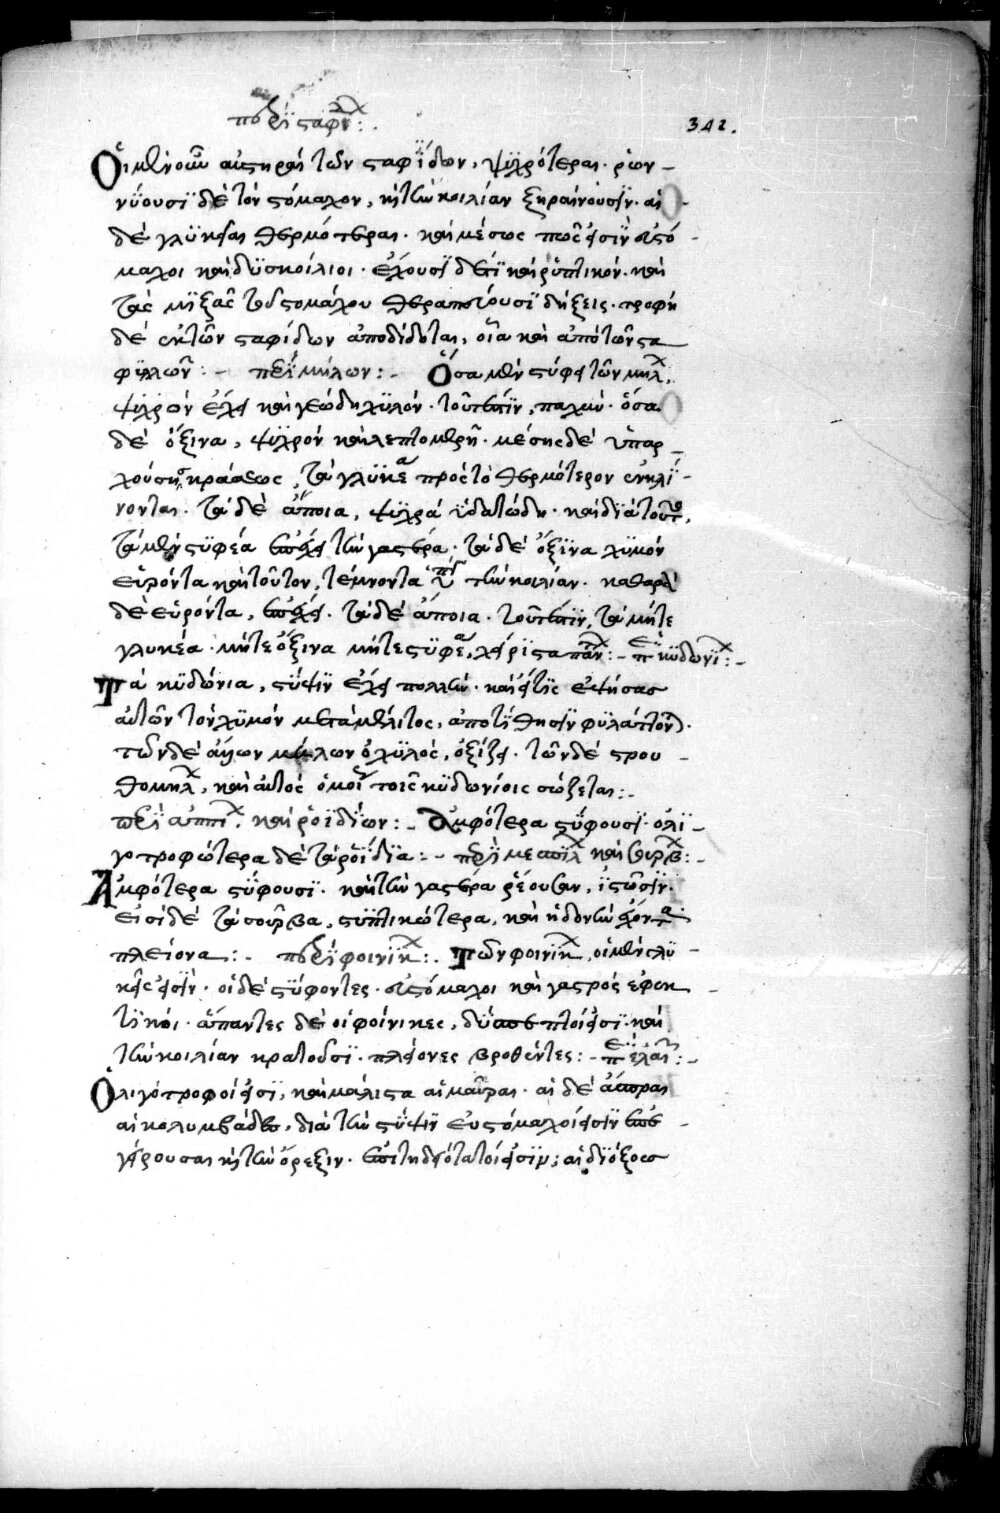 περὶ σταφίδων:
342.
Οἱ μὲν οὖν αὐστηραὶ τῶν σταφίδων, ψυχρότεραι· ρων
νύουσι δὲ τὸν στόμαχον, καὶ τὴν κοιλίαν ξηραίνουσιν· αἱ
δὲ γλυκεῖαι θερμότεραι· καὶ μέσως πῶς εἰσὶν εὐστό
μαχοι καὶ δυσκοίλιοι· ἔχουσι δέ τι καὶ ῥυπτικόν· καὶ
τὰς μιξὰς τοῦ στομάχου θεραπεύουσι δήξεις· τροφὴ
δὲ ἐκ τῶν σταφίδων ἀποδίδοται, οἵα καὶ ἀπὸ τῶν στα
φυλῶν:– περὶ μήλων:– Ὅσα μὲν στύφει τῶν μήλων,
ψυχρὸν ἔχει καὶ γεώδη χυλόν· τουτέστιν, παχύν· ὅσα
δὲ ὄξινα, ψυχρὸν καὶ λεπτομερῆ· μέσης δὲ ὑπαρ
χούσης κράσεως, τὰ γλυκέα πρὸς τὸ θερμότερον ἐκκλί
νονται· τὰ δὲ ἄποια, ψυχρὰ ὑδατώδη· καὶ διὰ τοῦτο,
τὰ μὲν στυφέα ἐπέχει τὴν γαστέρα· τὰ δὲ ὄξινα χυμὸν
εὑρόντα καὶ τοῦτον, τέμνοντα ὑπάγει τὴν κοιλίαν· καθαρὰ
δὲ εὑρόντα, ἐπέχει· τὰ δὲ ἄποια· τουτέστιν, τὰ μήτε
γλυκέα· μήτε ὄξινα μήτε στυφέα, χείριστα πάντων:– περὶ κυδωνίων:–
Τὰ κυδώνια, στύψιν ἔχει πολλήν· καὶ εἴ τις ἑψήσας
αὐτῶν τὸν χυμὸν μετὰ μέλιτος, ἀποτίθησιν φυλάττονται·
τῶν δὲ ἄλλων μήλων ὁ χυλός, ὀξίζει· τῶν δὲ στρου
θομήλων, καὶ αὐτὸς ὁμοίως τοῖς κυδωνίοις σώζεται:–
περὶ ἀπίων καὶ ῥοιδίων:– Ἀμφότερα στύφουσι· ὀλι
γοτροφώτερα δὲ τὰ ῥοίδια:– περὶ μεσπίλων καὶ σούρβων:–
Ἀμφότερα στύφουσι· καὶ τὴν γαστέρα ῥέουσαν, ἱστῶσιν·
εἰσὶ δὲ τὰ σοῦρβα, στυπτικώτερα, καὶ ἡδονὴν ἔχοντα
πλείονα:– περὶ φοινίκων:– Τῶν φοινίκων, οἱ μὲν γλυ
κεῖς εἰσίν· οἱ δὲ στύφοντες· εὐστόμαχοι καὶ γαστρὸς ἐφεκ
τικοί· ἅπαντες δὲ οἱ φοίνικες, δύσπεπτοί εἰσι· καὶ
τὴν κοιλίαν κρατοῦσι· πλείονες βρωθέντες:– περὶ ἐλαιῶν:–
Ὀλιγότροφοί εἰσι, καὶ μάλιστα αἱ μαῦραι· αἱ δὲ ἄσπραι
αἱ κολυμβάδες, διὰ τὴν στύψιν εὐστόμαχοί εἰσιν ἐπε
γείρουσαι καὶ τὴν ὄρεξιν· ἐπιτηδειόταται εἰσὶν; αἱ δι' ὄξους